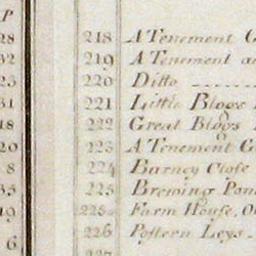 P
28 218 A Tenement G
32 219 A Tenement a
23 220 Ditto
31 221 Little Blogs
18 222 Great Blogs
20 223 A Tenement G
8 224 Barney Close
35 225 Brewing Pon
19 225a Farm House, O
226 Postern Leys
6
227